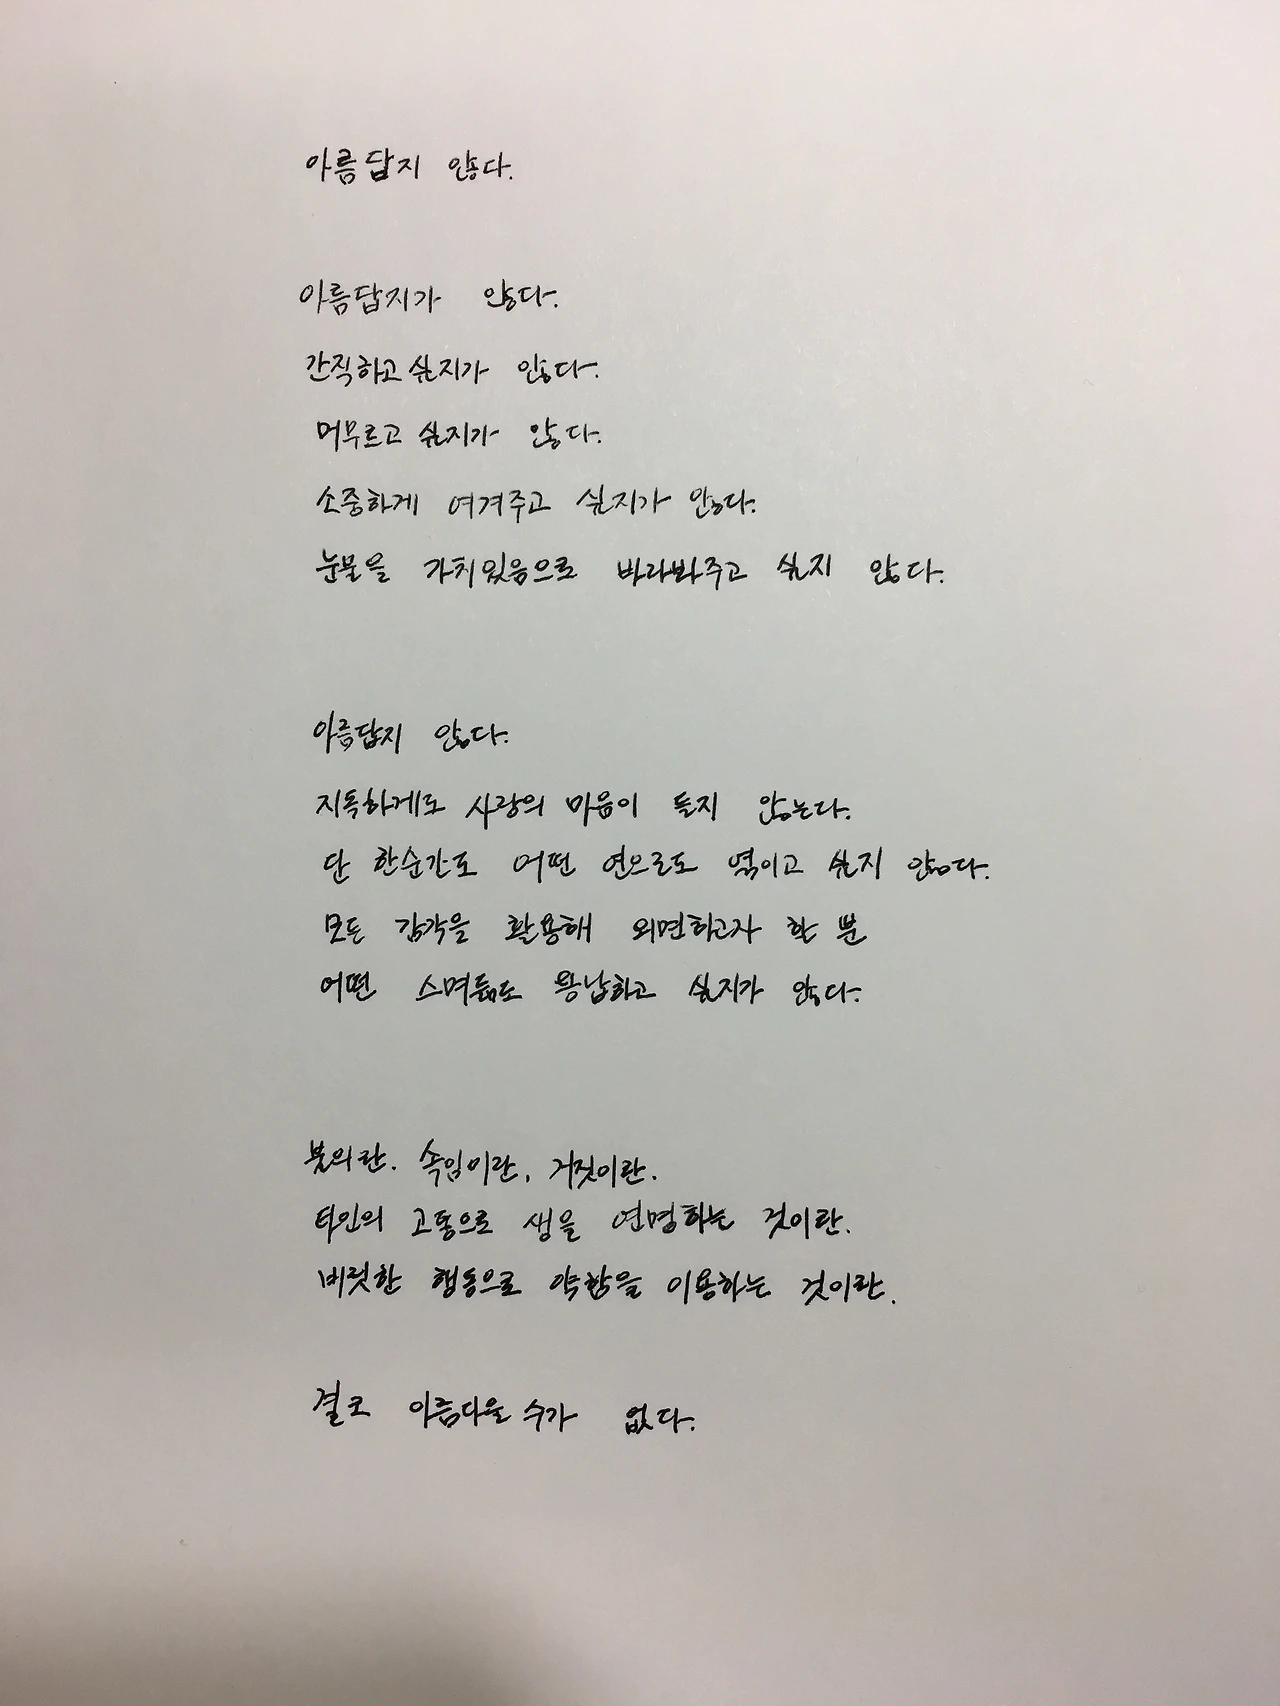 아름답지 않다.
아름답지가 않다.
간직하고 싶지가 않다.
머무르고 싶지가 않다.
소중하게 여겨주고 싶지가 않다.
눈물을 가치있음으로 바라봐주고 싶지 않다.
아름답지 않다.
지독하게도 사랑의 마음이 들지 않는다.
단 한순간도 어떤 연으로도 엮이고 싶지 않다.
모든 감각을 활용해 외면하고자 할 뿐
어떤 스며듦도 용납하고 싶지가 않다.
불의란. 속임이란, 거짓이란.
타인의 고통으로 생을 연명하는 것이란.
비릿한 행동으로 약함을 이용하는 것이란.
결코 아름다울 수가 없다.